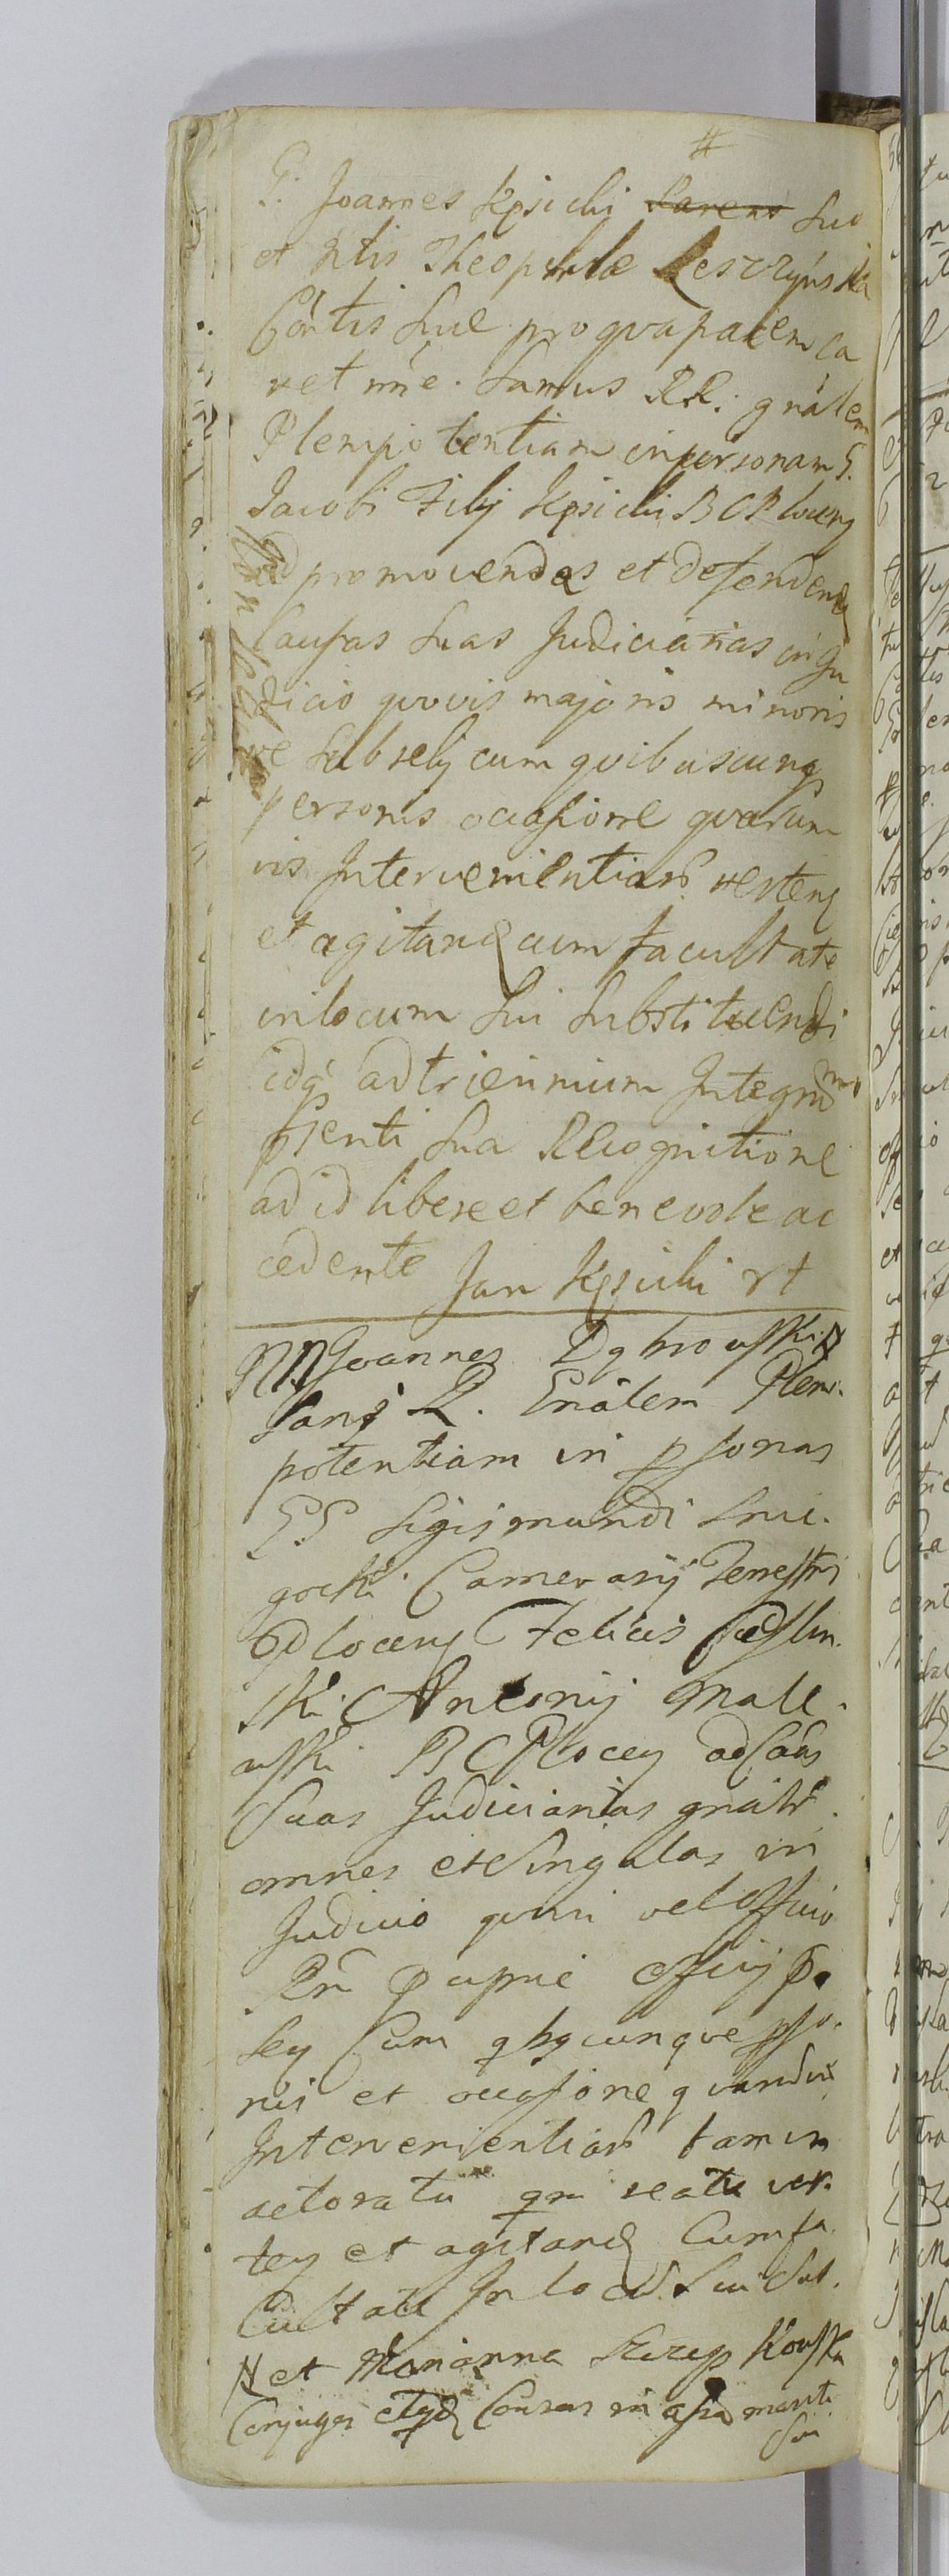 #
G. Joannes Kęsicki Sarens suo
et Ntis Theophilæ Leszczynska
Cortis suæ pro qva parem ca
vet nn̄e. Samus RR. gnālem
Plenipotentiam in personam G.
Jacobi Filij Kęsicki BCPlocen̄
ad promovendas et defendend
Causas suas Judiciarias in Ju
dicio qvovis majoris minoris
ve Subselij cum qvibuscunq
personis occasione qvarum
vis Intervenientiarū verten
et agitand cum facultate
in locum sui substituendi
idq ad triennium Integrū
psenti sua Recognitione
ad id libere et benevole ac
cedente Jan Kęsicki rt
NN Joannes Dąbrowski #
Sans R. Gnālem Pleni.
potentiam in psonas
GG Sigismundi Smi.
gocki Camerarij Terrestris
Plocen Felicis
ski Antonij Male.
wski BCPlocen ad Cāas
suas Judiciarias gnālr.
omnes et Singulas in
Judicio qvovi vel Officio
Rn̄
sey Cum qbqcunqve pso.
nis et occasione qvarūvis
Intervenientiarū tam in
actoratu qm reatu ver.
ten et agitand Cum fa.
cultate In locū sui Sub.
# et Marianna Szczepkowska
Conjuges Causas in assa mariti
sui